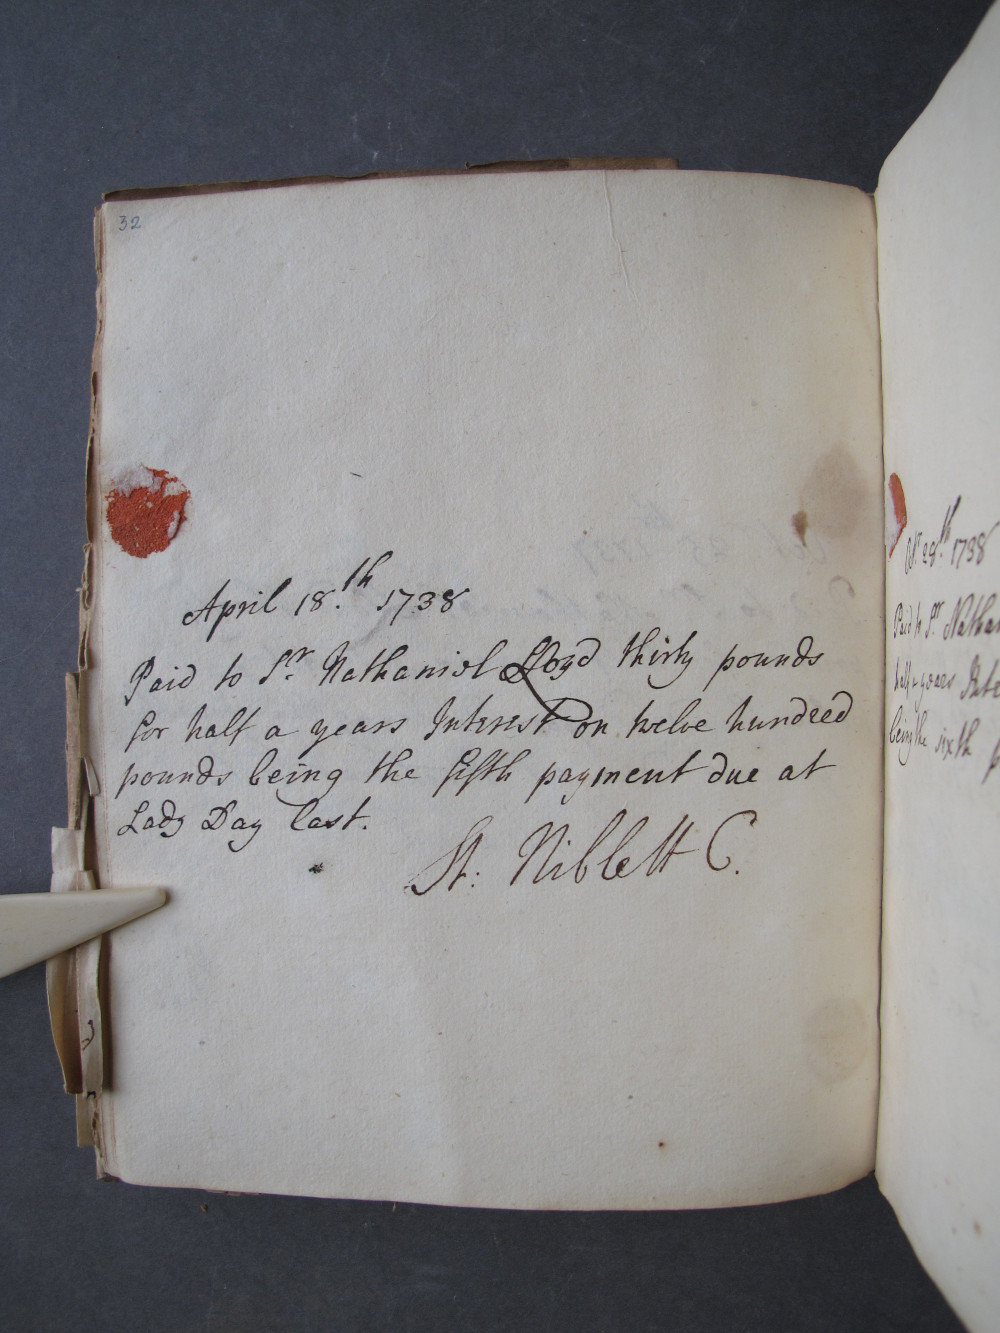 32
April 18.th 1738
Paid to Sr. Nathaniel Lloyd thirty pounds
for half a years Interest on twelve hundred
pounds being the fifth payment due at
Lady Day last.
St: Niblett C.
Oct. 28.th 1738
Paid to Sr. Nathan
half a years Inte
being the sixth p